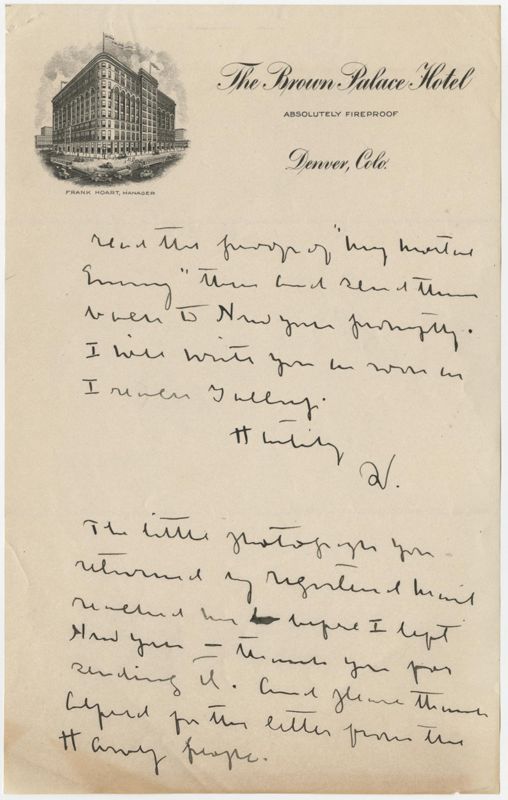 The Brown Palace Hotel
ABSOLUTELY FIREPROOF
Denver, Colo.
FRANK HOART, MANAGER
read the proofs of "My Mortal
Enemy" there and send them
back to New York promptly.
I will write you as soon as
I reach
Hastily
W.
The little photograph you
returned by registered mail
reached me before I left
New York — thank you for
sending it. And please thank
for the letter from the
people.